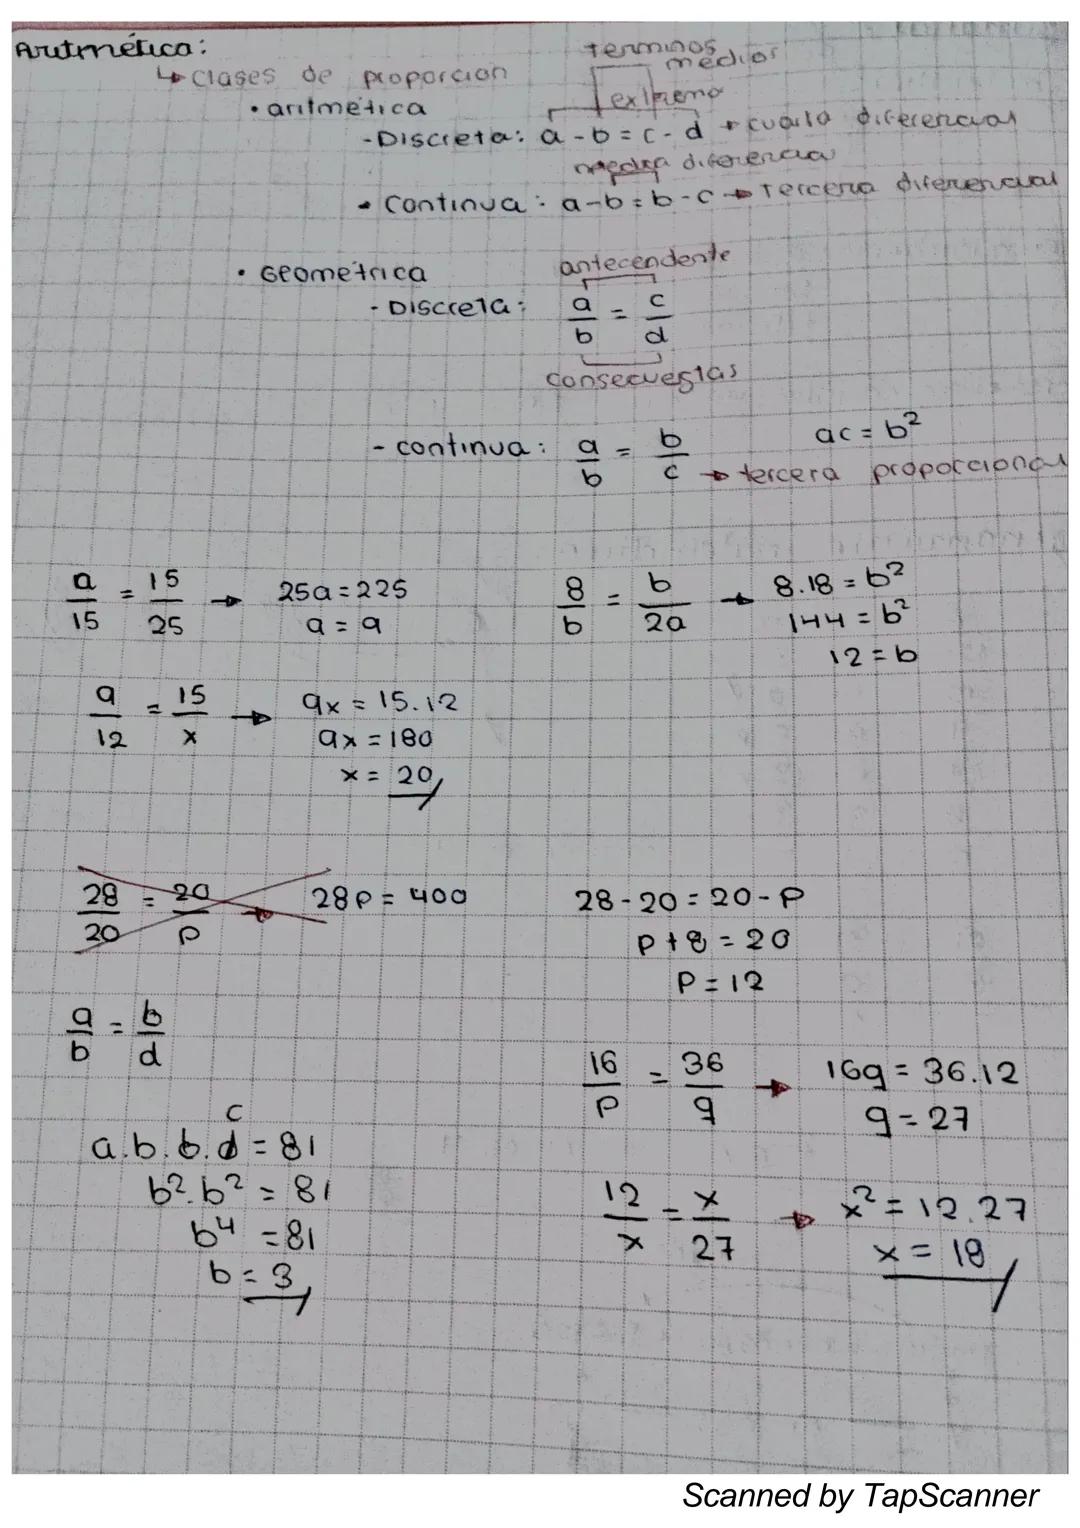 Aritmética:
↳ Clases de proporcion
• aritmética
terminos medios
extremo
- Discreta: a - b = c - d → cuarta diferencial
media diferencia
• Continua: a - b = b - c → Tercera diferencial
• Geométrica
antecendente
- Discreta: a/b = c/d
consecuestas
- continua: a/b = b/c → tercera proporcional
ac = b²
a/15 = 15/25 → 25a = 225
a = 9
8/b = b/2a → 8.18 = b²
144 = b²
12 = b
9/12 = 15/x → 9x = 15.12
9x = 180
x = 20
28/20 = 20/p → 28p = 400
28 - 20 = 20 - p
p + 8 = 20
p = 12
a/b = b/d
c
a.b.b.d = 81
b².b² = 81
b⁴ = 81
b = 3
16/p = 36/q → 16q = 36.12
q = 27
12/x = x/27 → x² = 12.27
x = 18
Scanned by TapScanner